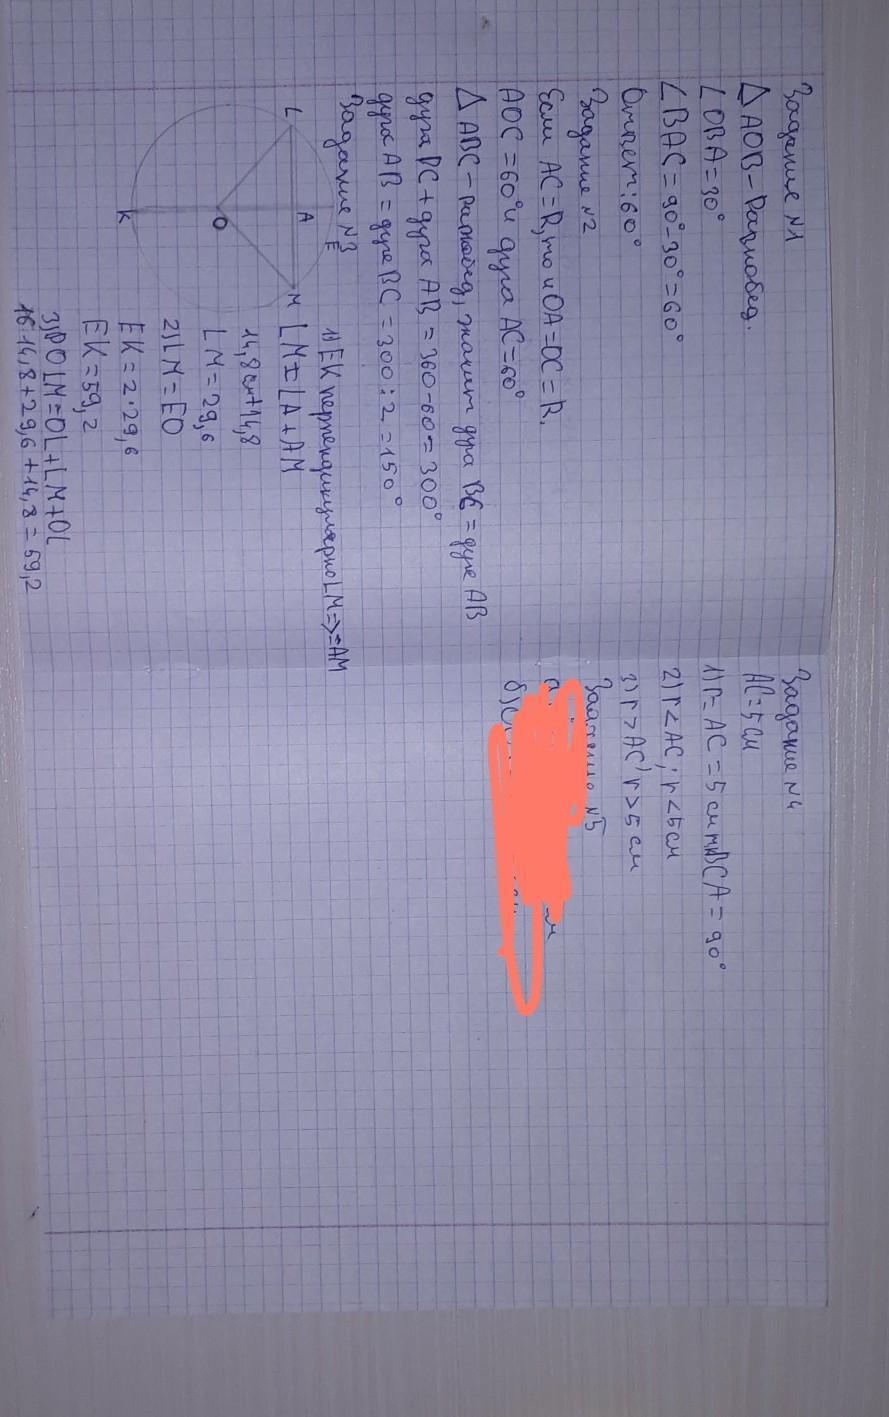 Задание №1
△ AOB - Равнобед.
∠OBA = 30°
∠BAC = 90° - 30° = 60°
Ответ: 60°
Задание №2
Если AC = R, то и OA = OC = R.
AOC = 60° и дуга AC = 60°
△ ABC - равнобед, значит дуга BC = дуге AB
дуга BC + дуга AB = 360 - 60 = 300°
дуга AB = дуге BC = 300 : 2 = 150°
Задание №3
L
A
E
M
O
K
1) EK перпендикулярно LM => = AM
LM = LA + AM
14,8 см + 14,8
LM = 29,6
2) LM = EO
EK = 2 · 29,6
EK = 59,2
3) P OLM = OL + LM + OL
14,8 + 29,6 + 14,8 = 59,2
Задание №4
AC = 5 см
1) r = AC = 5 см BCA = 90°
2) r < AC; r < 5 см
3) r > AC; r > 5 см
Задание №5
б)